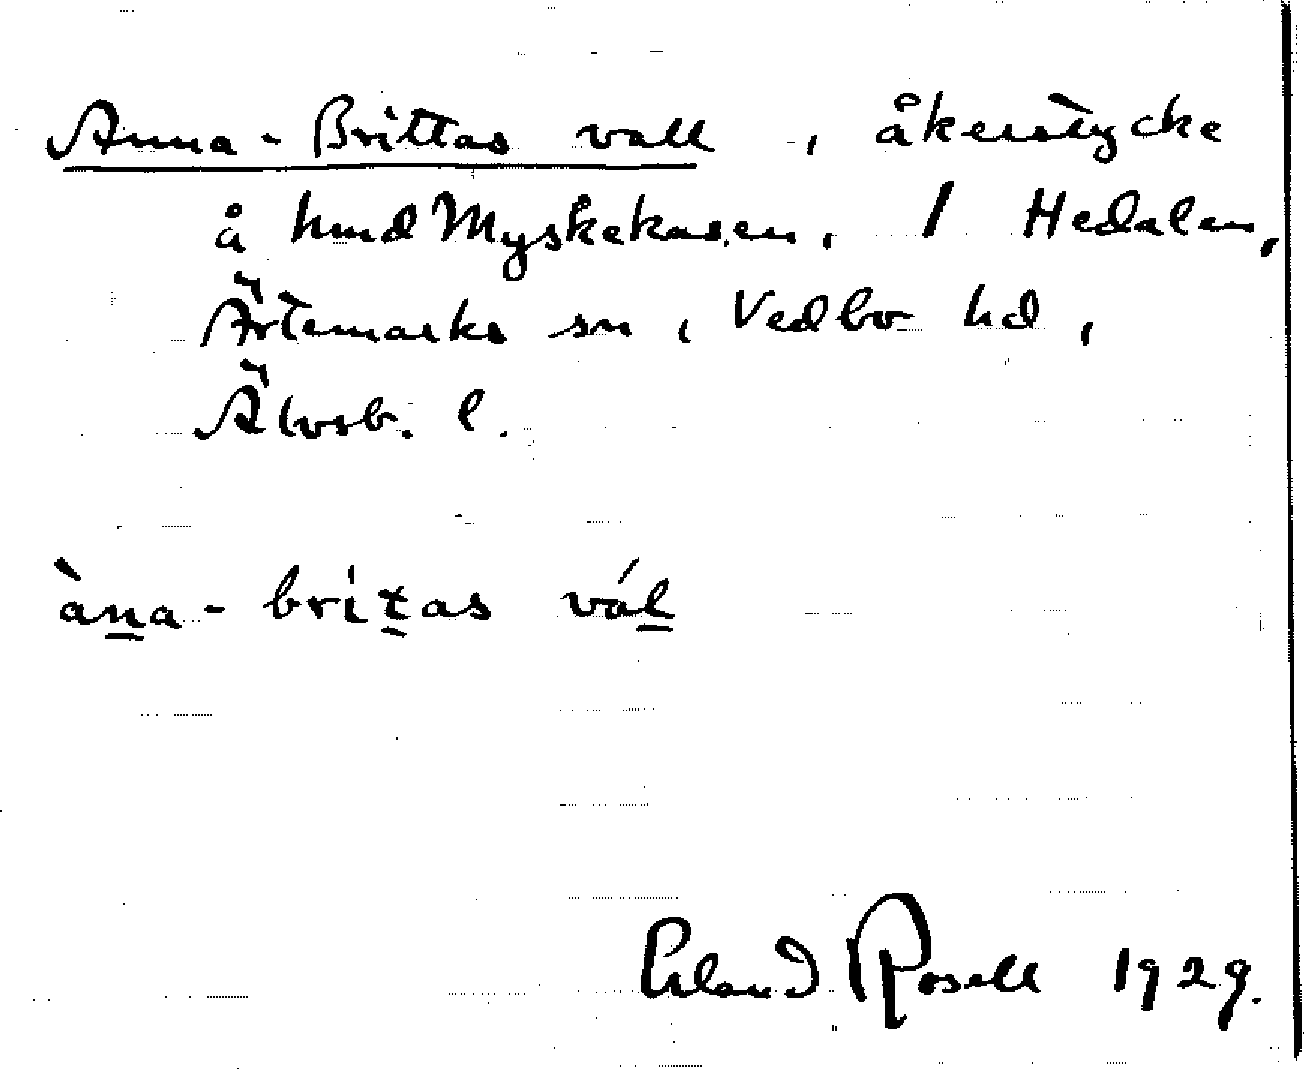 Anna-Brittas vall, åkerstycke
å hmd Myskekasen, 1 Hedalen,
Ärtemarks sn, Vedbo hd,
Älvsb. l.
àna- britas vál
Erland Rosell 1929.